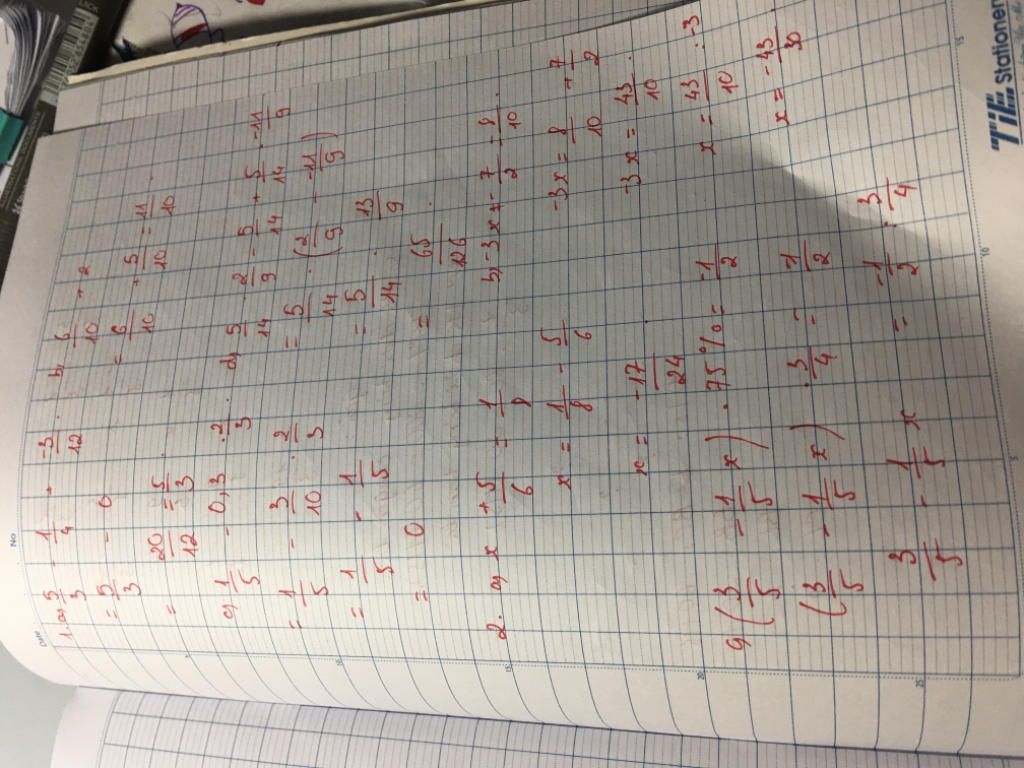 Date No
1. a, 5/3 - 1/4 + -3/12 .
= 5/3 - 0
= 20/12 = 5/3
b, 6/10 + 2
= 6/10 + 5/10 = 11/10 .
c, 1/5 - 0,3 . 2/3 .
= 1/5 - 3/10 . 2/3
= 1/5 - 1/5
= 0
d, 5/14 . 2/9 - 5/14 + 5/14 . -11/9
= 5/14 . (2/9 - -11/9)
= 5/14 . 13/9
= 65/126 .
2. a, x + 5/6 = 1/8
x = 1/8 - 5/6
x = -17/24
b, -3x + -7/2 = 8/10 .
-3x = 8/10 + 7/2
-3x = 43/10 .
x = 43/10 : -3
x = -43/30
(3/5 - 1/5 x) . 75% = -1/2
(3/5 - 1/5 x) . 3/4 = -1/2
3/5 - 1/5 x = -1/2 : 3/4
5
10
15
20
25
5
10
15